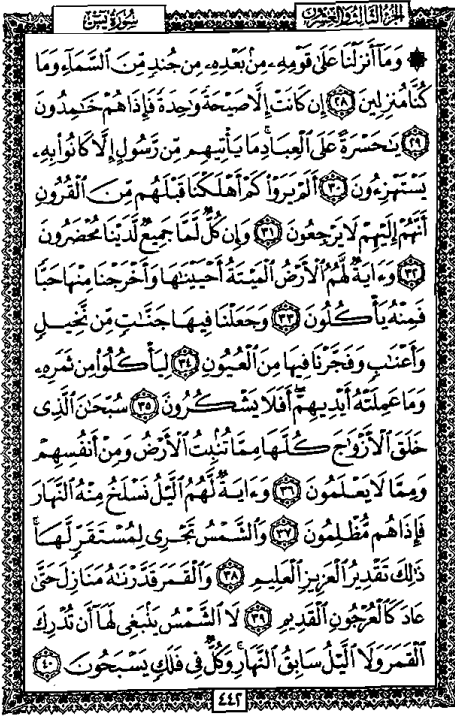 الجزء الثالث والعشرون
سورة يس
۞ وَمَآ أَنزَلْنَا عَلَىٰ قَوْمِهِۦ مِنۢ بَعْدِهِۦ مِن جُندٍ مِّنَ ٱلسَّمَآءِ وَمَا
كُنَّا مُنزِلِينَ ۝٢٨ إِن كَانَتْ إِلَّا صَيْحَةً وَٰحِدَةً فَإِذَا هُمْ خَٰمِدُونَ
۝٢٩ يَٰحَسْرَةً عَلَى ٱلْعِبَادِ ۚ مَا يَأْتِيهِم مِّن رَّسُولٍ إِلَّا كَانُوا۟ بِهِۦ
يَسْتَهْزِءُونَ ۝٣٠ أَلَمْ يَرَوْا۟ كَمْ أَهْلَكْنَا قَبْلَهُم مِّنَ ٱلْقُرُونِ
أَنَّهُمْ إِلَيْهِمْ لَا يَرْجِعُونَ ۝٣١ وَإِن كُلٌّ لَّمَّا جَمِيعٌ لَّدَيْنَا مُحْضَرُونَ
۝٣٢ وَءَايَةٌ لَّهُمُ ٱلْأَرْضُ ٱلْمَيْتَةُ أَحْيَيْنَٰهَا وَأَخْرَجْنَا مِنْهَا حَبًّا
فَمِنْهُ يَأْكُلُونَ ۝٣٣ وَجَعَلْنَا فِيهَا جَنَّٰتٍ مِّن نَّخِيلٍ
وَأَعْنَٰبٍ وَفَجَّرْنَا فِيهَا مِنَ ٱلْعُيُونِ ۝٣٤ لِيَأْكُلُوا۟ مِن ثَمَرِهِۦ
وَمَا عَمِلَتْهُ أَيْدِيهِمْ ۖ أَفَلَا يَشْكُرُونَ ۝٣٥ سُبْحَٰنَ ٱلَّذِى
خَلَقَ ٱلْأَزْوَٰجَ كُلَّهَا مِمَّا تُنۢبِتُ ٱلْأَرْضُ وَمِنْ أَنفُسِهِمْ
وَمِمَّا لَا يَعْلَمُونَ ۝٣٦ وَءَايَةٌ لَّهُمُ ٱلَّيْلُ نَسْلَخُ مِنْهُ ٱلنَّهَارَ
فَإِذَا هُم مُّظْلِمُونَ ۝٣٧ وَٱلشَّمْسُ تَجْرِى لِمُسْتَقَرٍّ لَّهَا ۚ
ذَٰلِكَ تَقْدِيرُ ٱلْعَزِيزِ ٱلْعَلِيمِ ۝٣٨ وَٱلْقَمَرَ قَدَّرْنَٰهُ مَنَازِلَ حَتَّىٰ
عَادَ كَٱلْعُرْجُونِ ٱلْقَدِيمِ ۝٣٩ لَا ٱلشَّمْسُ يَنۢبَغِى لَهَآ أَن تُدْرِكَ
ٱلْقَمَرَ وَلَا ٱلَّيْلُ سَابِقُ ٱلنَّهَارِ ۚ وَكُلٌّ فِى فَلَكٍ يَسْبَحُونَ ۝٤٠
٤٤٢